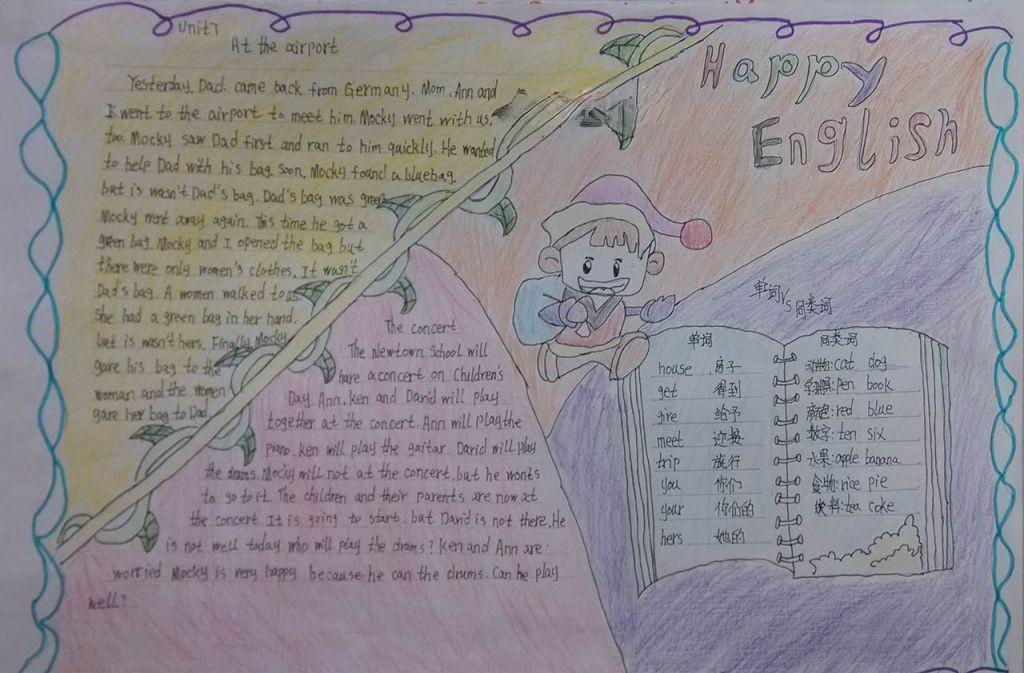 Unit7
At the airport
Yesterday, Dad came back from Germany. Mom, Ann and
I went to the airport to meet him. Mocky went with us,
too. Mocky saw Dad first and ran to him quickly. He wanted
to help Dad with his bag. Soon, Mocky found a bluebag
but is wasn't Dad's bag. Dad's bag was green
Mocky went away again. This time he got a
green bag. Mocky and I opened the bag but
there were only women's clothes. It wasn't
Dad's bag. A women walked to us
She had a green bag in her hand,
but is wasn't hers. Finally Mocky
gave his bag to the
woman and the women
gave her bag to Dad.
The concert
The Newtown School will
have a concert on Children's
Day. Ann, Ken and David will play
together at the concert. Ann will play the
piano. Ken will play the gaitar. David will play
the drams. Mocky will not at the concert, but he wonts
to go to it. The children and their parents are now at
the concert. It is going to start. but David is not there. He
is not well today who will play the drams? Ken and Ann are
worried Mocky is very happy because he can the drums. Can he play
well?
Happy
English
单词VS同类词
单词
house 房子
get 得到
give 给予
meet 迎接
trip 旅行
you 你们
your 你们的
hers 她的
同类词
动物:cat dog
学习用品:pen book
颜色:red blue
数字:ten six
水果:apple banana
食物:rice pie
饮料:tea coke